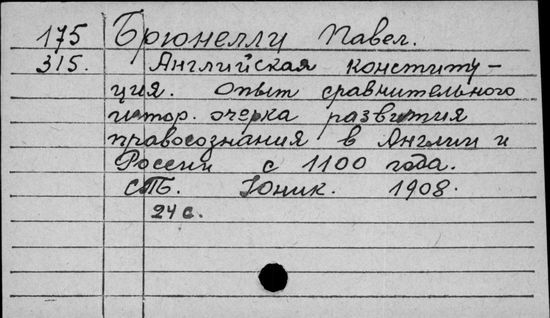 175 Брюнелли Павел.
315. Английская конститу-
ция. Опыт сравнительного
истор. очерка развития
правосознания в Англии и
России с 1100 года.
СПБ. Юник. 1908.
24 с.